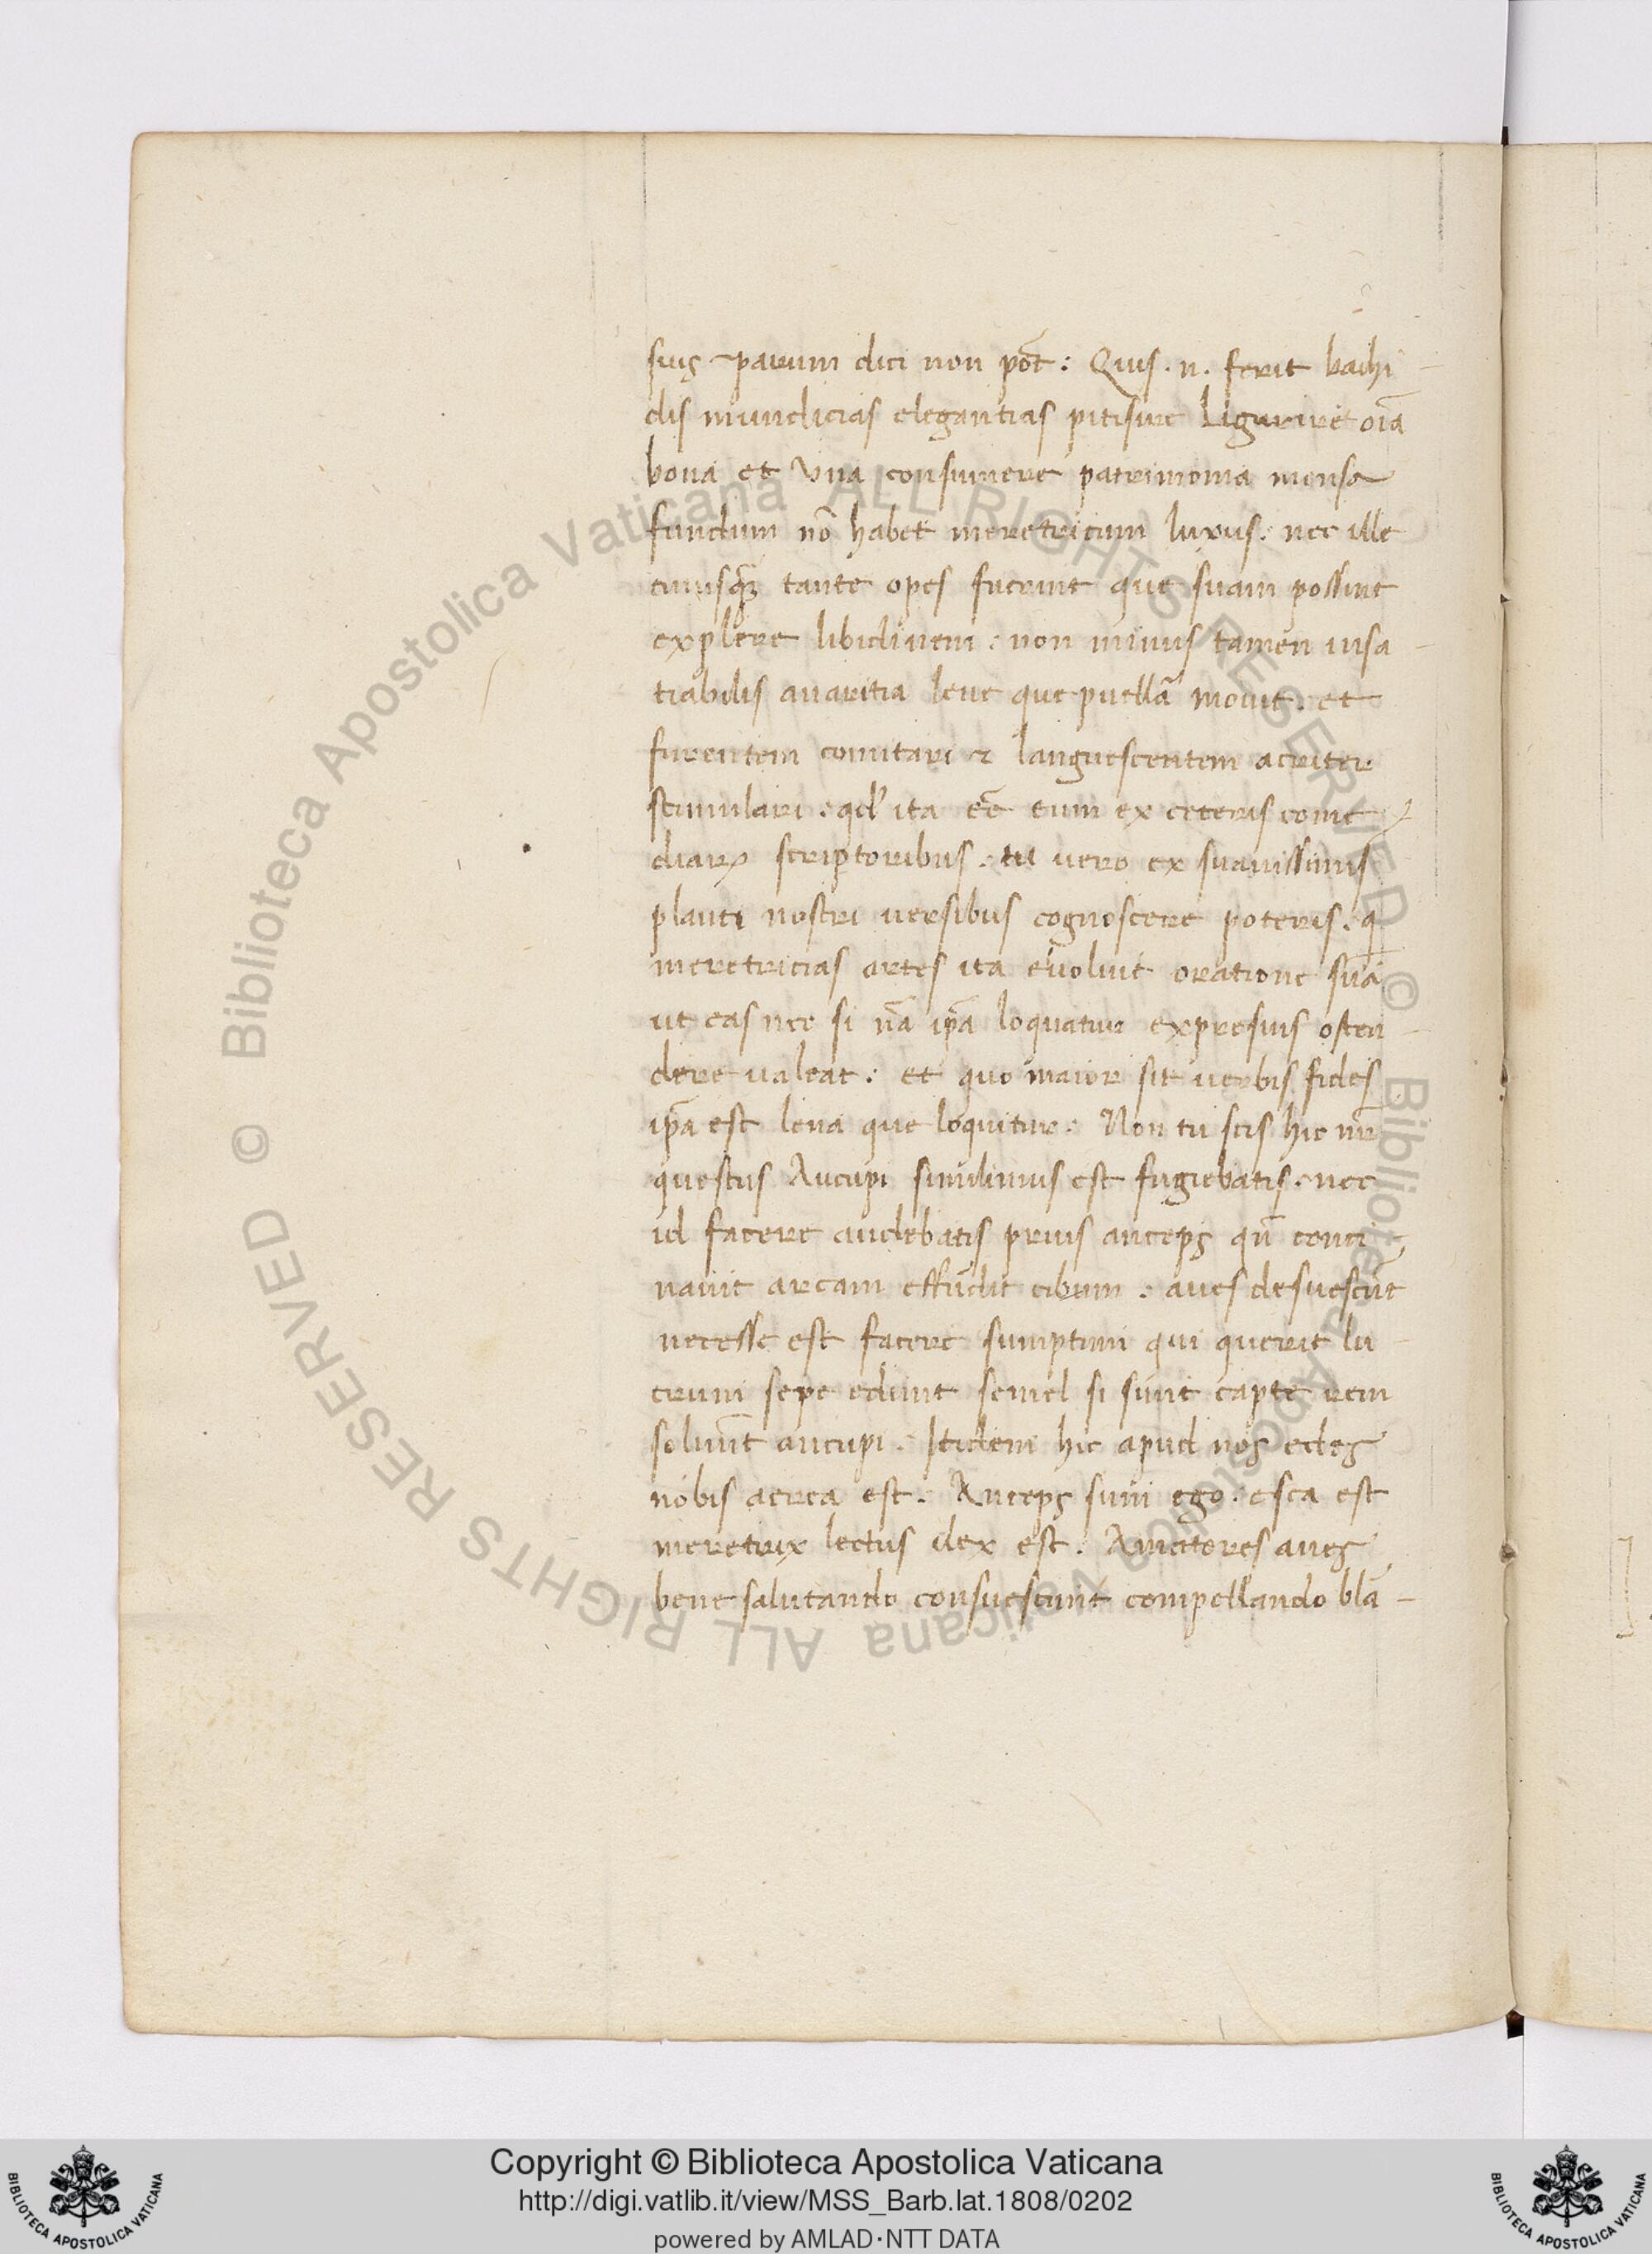 suis parum dici non pōt: Quis .n. ferit bachi-
dis mundicias elegantias pitisare Ligurire oīa
bona et Vna consumere patrimonia mensa
fundum nō habet meretricum luxus: nec ille
cuiusq̃ tante opes fuerint que suam possint
explere libidinem: non minus tamen insa-
tiabilis auaritia lene que puellā mouit. et
furentem comitari & languescentem acriter
stimulari: qd' ita eē tum ex ceteris come-
diarꝝ scriptoribus. tu uero ex suauissimis
plauti nostri uersibus cognoscere poteris. q
meretricias artes ita euoluit oratione sua
ut eas nec si nā ip̄a loquatur expresius osten-
dere ualeat: et quo maior sit uerbis fides
ip̄a est lena que loquitur: Non tu scis hic nr̄
questus Aucupi similimus est fugiebatis. nec
id facere audebatis prius auceps qn̄ conci-
nauit arcam effundit cibum. aues desuescūt
necesse est facere sumptum qui querit lu-
crum sepe edunt semel si sunt capte rem
soluūt aucupi. Itidem hic apud nos edes
nobis aerea est. Auceps sum ego: esca est
meretrix lectus ilex est. Amatores aues
bene salutando consuescunt compellando blā-
Copyright © Biblioteca Apostolica Vaticana
http://digi.vatlib.it/view/MSS_Barb.lat.1808/0202
powered by AMLAD·NTT DATA
© Biblioteca Apostolica Vaticana ALL RIGHTS RESERVED © Biblioteca Apostolica Vaticana ALL RIGHTS RESERVED
BIBLIOTECA APOSTOLICA VATICANA
BIBLIOTECA APOSTOLICA VATICANA